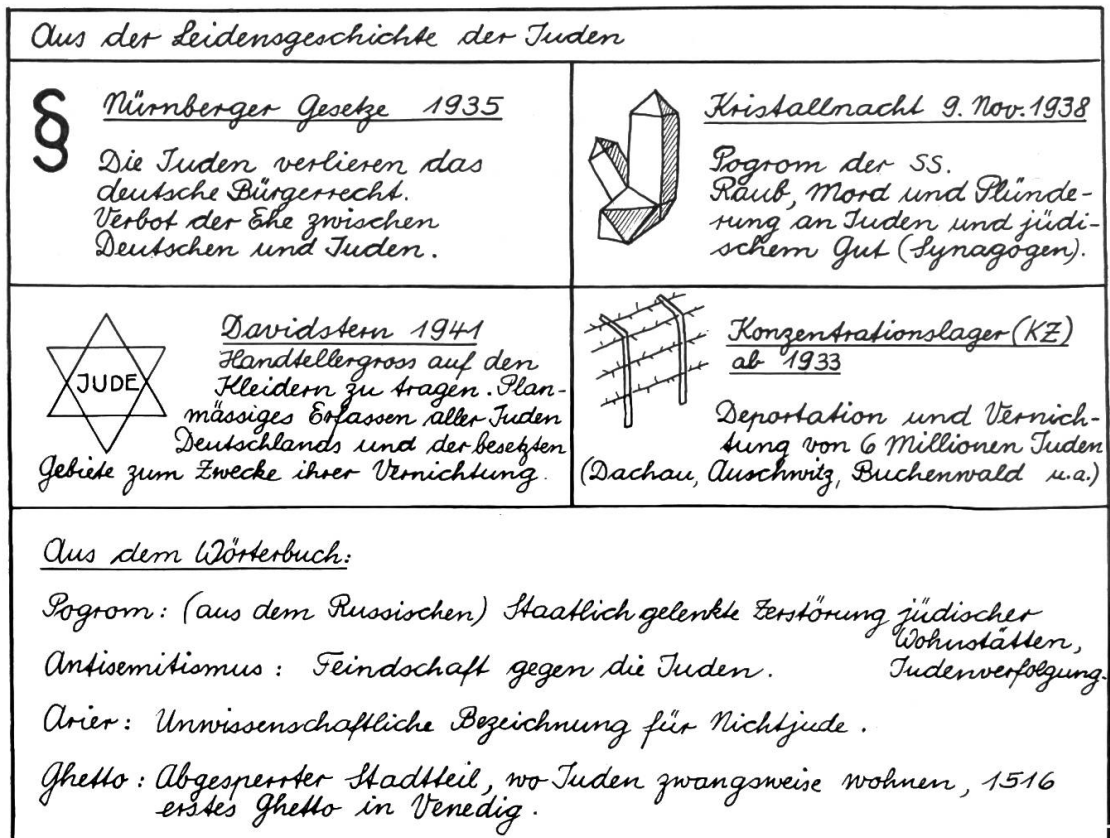 Aus der Leidensgeschichte der Juden
§
Nürnberger Gesetze 1935
Die Juden verlieren das
deutsche Bürgerrecht.
Verbot der Ehe zwischen
Deutschen und Juden.
Kristallnacht 9. Nov. 1938
Pogrom der SS.
Raub, Mord und Plünde-
rung an Juden und jüdi-
schem Gut (Synagogen).
JUDE
Davidstern 1941
Handtellergross auf den
Kleidern zu tragen. Plan-
mässiges Erfassen aller Juden
Deutschlands und der besetzten
Gebiete zum Zwecke ihrer Vernichtung.
Konzentrationslager (KZ)
ab 1933
Deportation und Vernich-
tung von 6 Millionen Juden
(Dachau, Auschwitz, Buchenwald u.a.)
Aus dem Wörterbuch:
Pogrom: (aus dem Russischen) Staatlich gelenkte Zerstörung jüdischer
Wohnstätten,
Judenverfolgung.
Antisemitismus: Feindschaft gegen die Juden.
Arier: Unwissenschaftliche Bezeichnung für Nichtjude.
Ghetto: Abgesperrter Stadtteil, wo Juden zwangsweise wohnen, 1516
erstes Ghetto in Venedig.